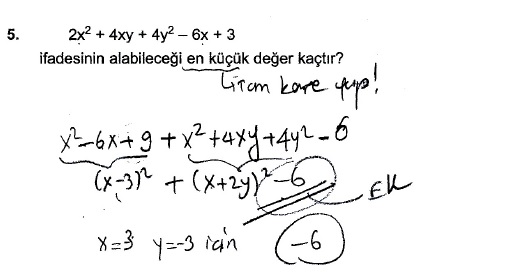 5. 2x² + 4xy + 4y² – 6x + 3
ifadesinin alabileceği en küçük değer kaçtır?
Tam kare yap!
x²-6x+9 + x²+4xy+4y²-6
(x-3)² + (x+2y)²-6
EK
x=3 y=-3 için -6